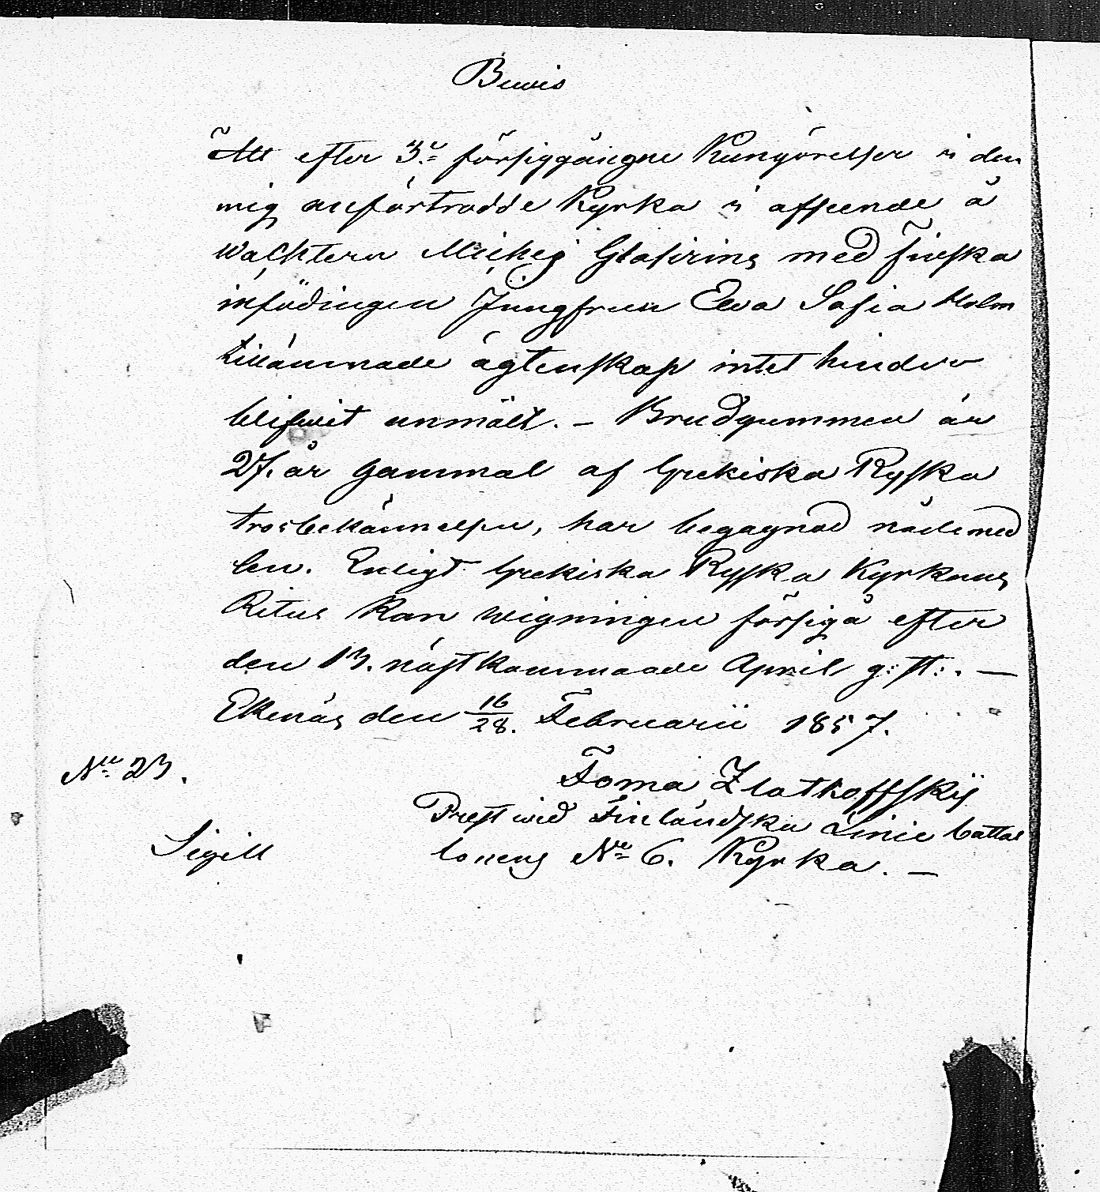 Bewis
Att efter 3:e försiggångne Kungörelser i den
mig anförtrodde Kyrka i afseende å
Wachtern Michej Glasirins med finska
infödingen Jungfrun Ewa Sofia Holm
tillämnade ägtenskap intet hinder
blifwit anmält. – Brudgummen är
27. år gammal af Grekiska Ryska
trosbekännelsen, har begagnad nådemed
len. Enligt Grekiska Ryska Kyrkans
Ritus kan wigningen försigå efter
den 13. nästkommande April g: st:. —
Ekenäs den 16/28. Februarii 1857.
No 23.
Foma Zlatkoffskij
Prest wid Finländska Linie battal
Sigill
lonens No 6. Kyrka. —